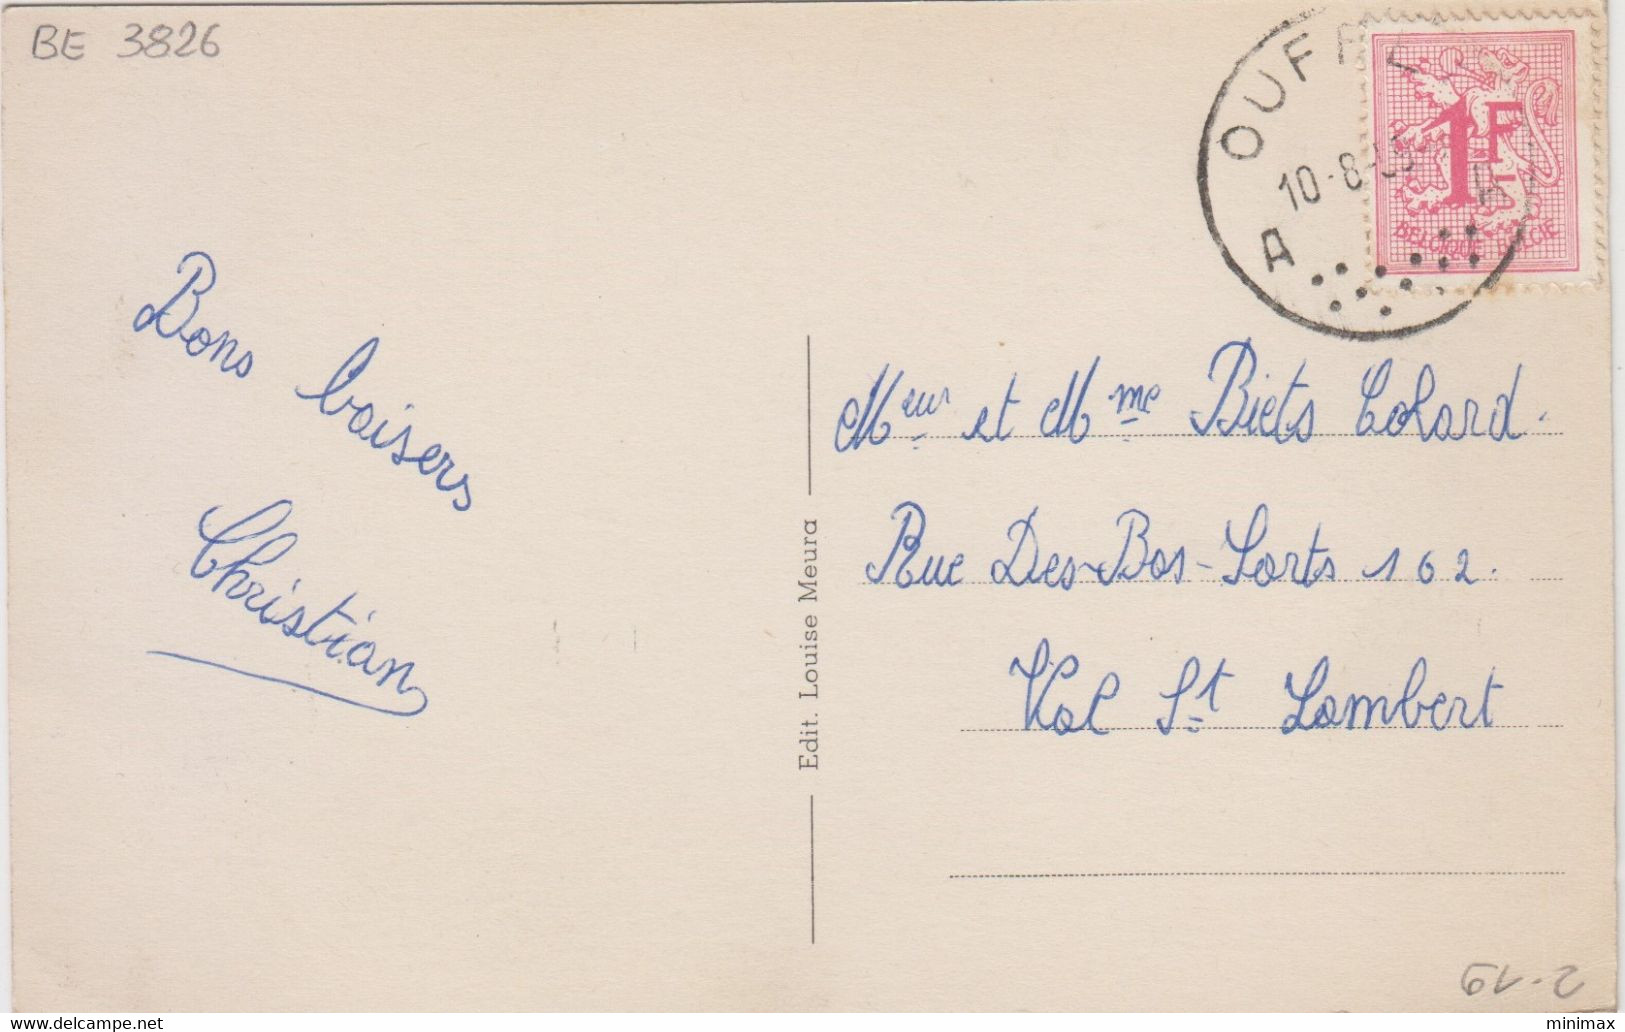 BE 3826
OUFF
10-8-
A
1F
BELGIQUE BELGIE
Bons baisers
Christian
Edit. Louise Meura
Meur et Mme Biets Colard.
Rue Des-Bos-Sorts 102.
Val St Lambert
2-19
www.delcampe.net
minimax